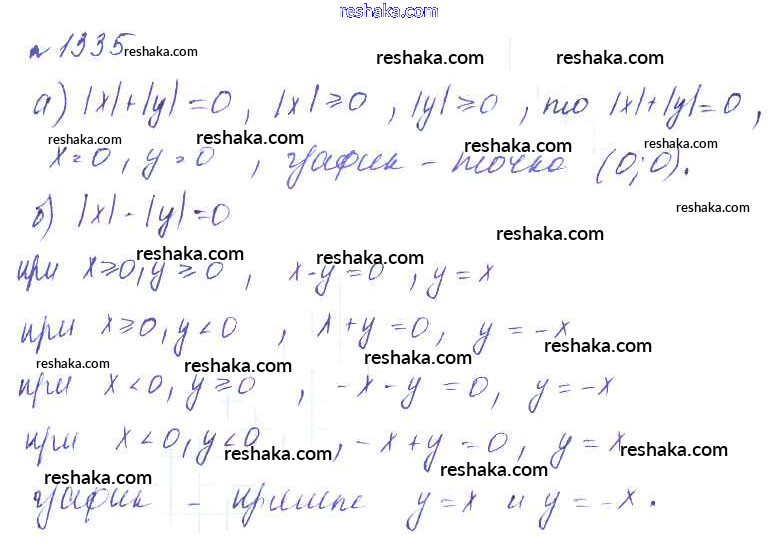 reshaka.com
№ 1335 reshaka.com
reshaka.com reshaka.com
а) |x|+|y|=0, |x|⩾0, |y|⩾0, то |x|+|y|=0,
reshaka.com reshaka.com reshaka.com
x=0, y=0, график – точка (0;0).
reshaka.com
б) |x|-|y|=0
reshaka.com
reshaka.com
при x⩾0, y⩾0, x-y=0, y=x
reshaka.com
при x⩾0, y<0, x+y=0, y=-x
reshaka.com reshaka.com reshaka.com reshaka.com
при x<0, y⩾0, -x-y=0, y=-x
при x<0, y<0, -x+y=0, y=x
reshaka.com reshaka.com
reshaka.com reshaka.com
график – прямые y=x и y=-x.